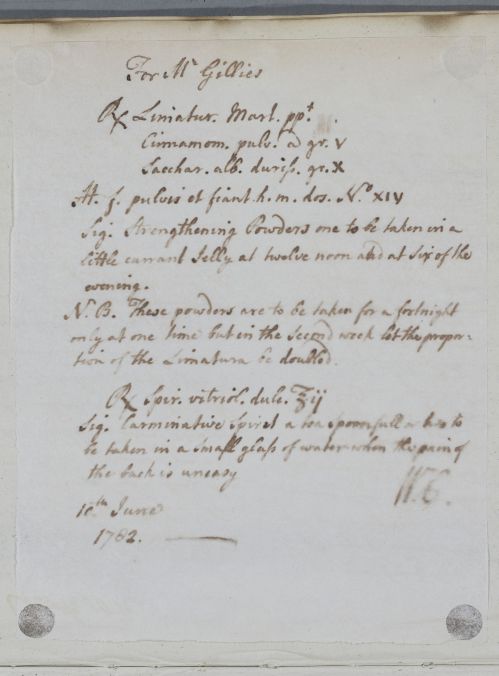 For Mr Gillies
℞ Limatur. Mart. ppt.
Cinnamom. pulv. a gr. v
Sacchar. alb. duriss. gr. x
M. f. pulvis et fiant h. m. dos. No. xiv
Sig. Strengthening Powders one to be taken in a
little currant Jelly at twelve noon and at Six of the
evening.
N.B. These powders are to be taken for a fortnight
only at one time but in the Second week let the propor-
tion of the Limatura be doubled.
℞ Spir. vitriol. dulc. ℥ij
Sig. Carminative Spirit a tea spoonfull or two to
be taken in a small glass of water when the pain of
the back is uneasy
W.C.
10th June
1782.